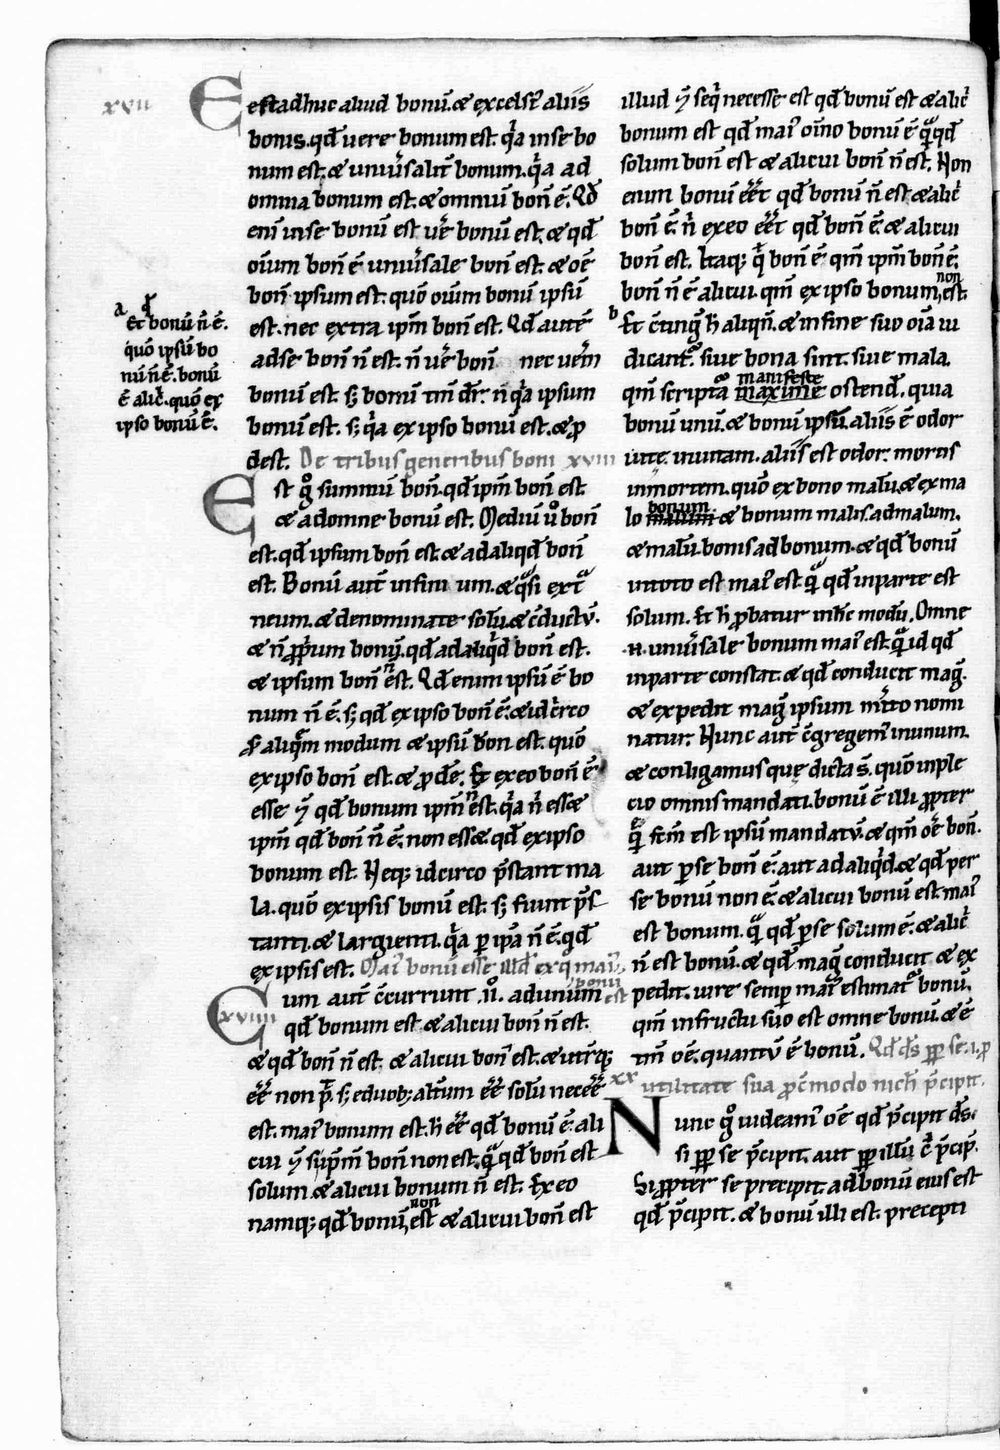 xvii
Eest adhuc aliud bonū. & excelsi᷒ aliis
bonis. qđ uere bonum est. qͥa in se bo
num est. & uniuͥsalit᷒ bonum. qͥa ad
omnia bonum est. & omniū bon̄ ē. Qđ
eni in se bonū est ue᷒ bonū est. & qđ
oīum bon̄ ē uniuͥsale bon̄ est. & oē
bon̄ ipsum est. quō oīum bonū ipsū
est. nec extra ip̄m bon̄ est. Qđ autē
ad se bon̄ n̄ est. n̄ ue᷒ bon̄ nec ueͥm
bonū est. s; bonū tm̄ dr̄. n̄ qͥa ipsum
bonū est. s; qͥa ex ipso bonū est. & ꝓ
dest. De tribus generibus boni xviii
Est gͦ summū bon̄. qđ ip̄m bon̄ est.
& ad omne bonū est. Mediū uͦ bon̄
est. qđ ipsum bon̄ est. & ad aliqđ bon̄
est. Bonū aut̄ infimum. & qͣsi extͣ
neum. & denominate solū. & c̄ductū.
& n̄ ꝓpͥum bonū. qđ ad aliqͥd bon̄ est.
& ipsum bon̄ n̄ est. Qđ enim ipsū ē bo
num n̄ ē. s; qđ ex ipso bon̄ ē. & idcͥrco
aliqͣm modum & ipsū bon est. quō
ex ipso bon̄ est. & ꝓdē. Et ex eo bon̄ ē
esse ÿ qđ bonum ip̄m n̄ est. qͥa n̄ esse
ip̄m qđ bon̄ n̄ ē. non esse. qđ ex ipso
bonum est. Neq; idcirco p̄stant ma
la. quō ex ipsis bonū est. s; fiunt p̄s
tanti. & largienti. qͥa ꝑ ipā n̄ ē. qđ
ex ipsis est. Mai᷒ bonū esse illđ ex q mai᷒ bonū est
xviiii
Cum aut̄ c̄currunt .ii. ad unum
qđ bonum est & alicui bon̄ n̄ est.
& qđ bon̄ n̄ est. & alicui bon̄ est. & ut͛q;
ee᷒ non p̄t. s; e duob; alt͛um ee᷒ solū neceē
est. mai᷒ bonum est. h̄ ee᷒ qđ bonū ē. ali
cui ÿ sup̄m bon̄ non est. qͣ qđ bon̄ est
solum. & alicui bonum n̄ est. Ex eo
namq; qđ bonū non est & alicui bon̄ est
a qđ
Et bonū n̄ ē.
quō ipsū bo
nū n̄ ē. bonū
ē alicͥ. quō ex
ipso bonū ē.
illud ÿ seqͥ necesse est qđ bonū est & alicͥ
bonum est qđ mai᷒ oīno bonū ē qͣ qđ
solum bon̄ est & alicui bon̄ n̄ est. Non
enim bonū eēt qđ bonū n̄ est & alicͥ
bon̄ ē. n̄ ex eo eēt qđ bon̄ ē. & alicui
bon̄ est. Itaq; qͥ bon̄ ē qm̄ ip̄m bon̄ ē.
bon̄ n̄ ē alicui. qm̄ ex ipso bonum non est.
b Et c̄tingͥ h̄ aliqn̄. & in fine suo oīa ui
dicant᷒. siue bona sint. siue mala.
qm̄ scripta᷒ maxime manifeste ostend᷒. quia
bonū unū. & bonū ipsū. aliis ē odor
uite. in uitam. aliis est odor. mortis
in mortem. quō ex bono malū. & ex ma
lo malum bonum & bonum malis. ad malum.
& malū. bonis ad bonum. & qđ bonū
in toto est mai᷒ est qͣ qđ in parte est
solum. Et h̄ ꝓbatur in hc̄ modū. Omne
.n. uniuͥsale bonum mai᷒ est. qͣ id qđ
in parte constat. & qđ conducit mag᷒.
& expedit mag᷒ ipsum mͥto nomi
natur. Nunc aut̄ c̄gregem᷒ in unum.
& colligamus quę dicta s̄. quō inple
cio omnis mandati. bonū ē illi ꝓpter
qͥ fcm̄ est ipsū mandatū. & qm̄ oē bon̄.
aut per se bon̄ ē. aut ad aliqͥd. & qđ per
se bonū non ē. & alicui bonū est. mai᷒
est bonum. qͣ qđ ꝑ se solum ē. & alicͥ
n̄ est bonū. & qđ mag᷒ conducit & ex
pedit. iure semper mai᷒ estimat᷒ bonū.
qm̄ in fructu suo est omne bonū & ē
tm̄ oē. quantū ē bonū. Qđ ds̄ ꝓp se. i. ꝓ
xx utilitate sua ꝓc̄modo nich p̄cipit.
Nunc gͦ uideam᷒ oē qđ p̄cipit ds̄.
si ꝓp se p̄cipit. aut ꝓp illū cͥ p̄cip̄.
Si ꝓpter se precipit. ad bonū eius est
qđ p̄cipit. & bonū illi est. precepti